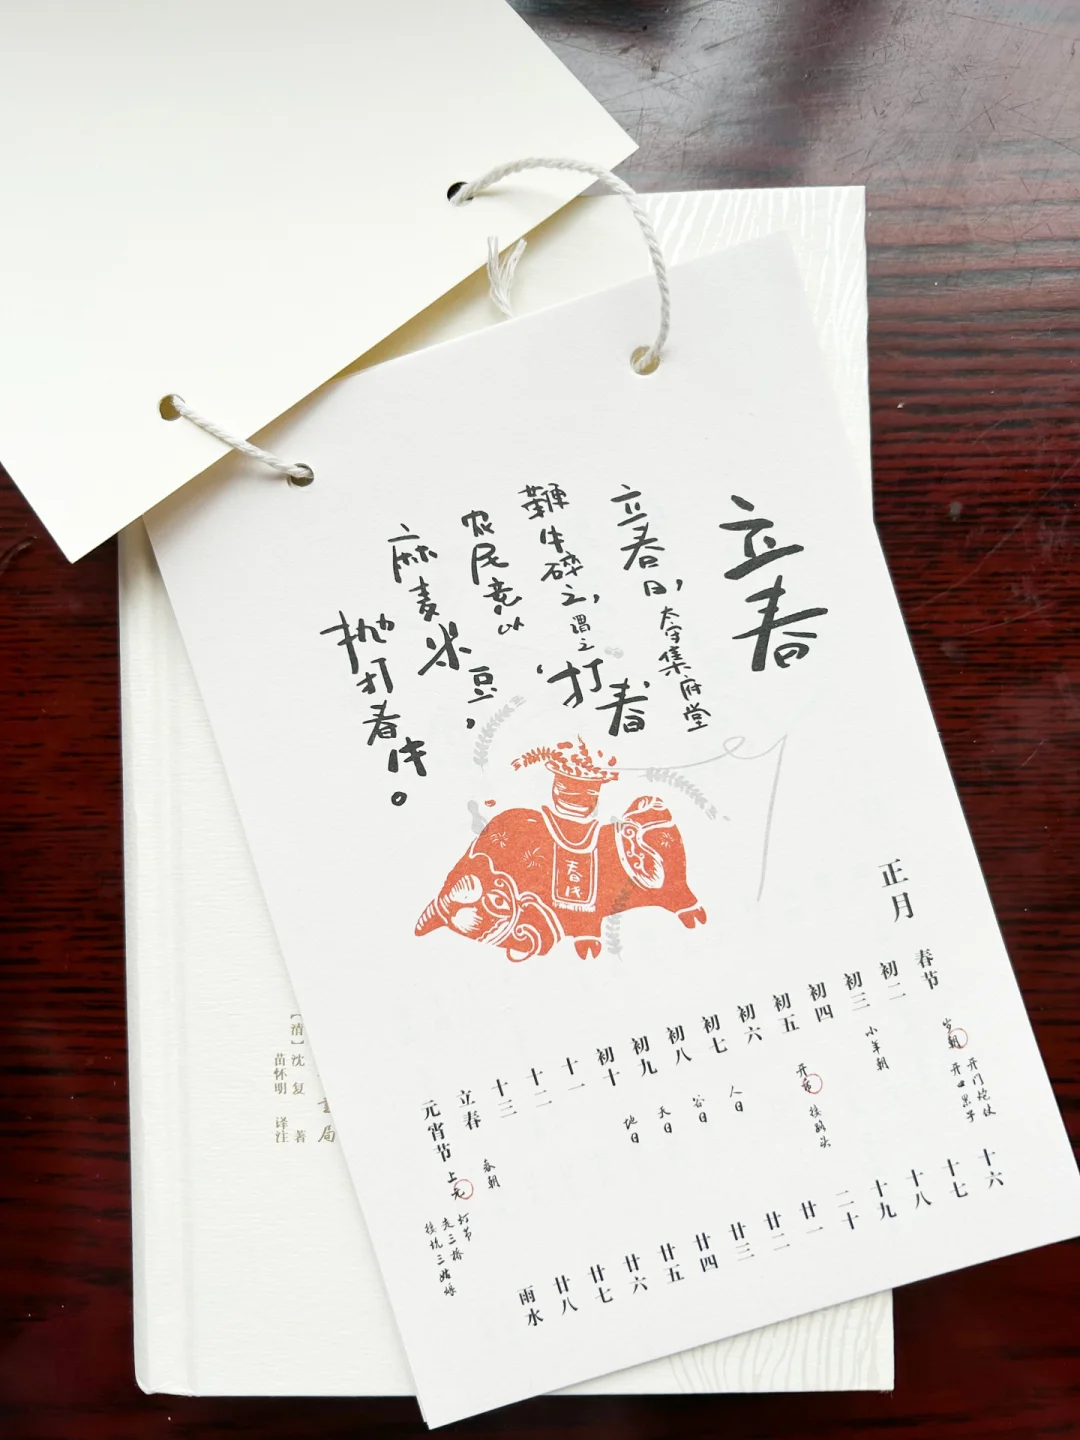 立春
立春日，太守集府堂
鞭牛碎之，谓之‘打春’
农民竞以
麻麦米豆，
抛打春牛。
春牛
正月
春节
岁朝 开门炮仗
开口果子
初二
初三
小年朝
初四
初五
开市 接路头
初六
初七
人日
初八
谷日
初九
天日
初十
地日
十一
十二
十三
立春
春朝
元宵节
上元 灯节
走三桥
接坑三姑娘
十六
十七
十八
十九
二十
廿一
廿二
廿三
廿四
廿五
廿六
廿七
廿八
雨水
［清］沈复 著
苗怀明 译注
局